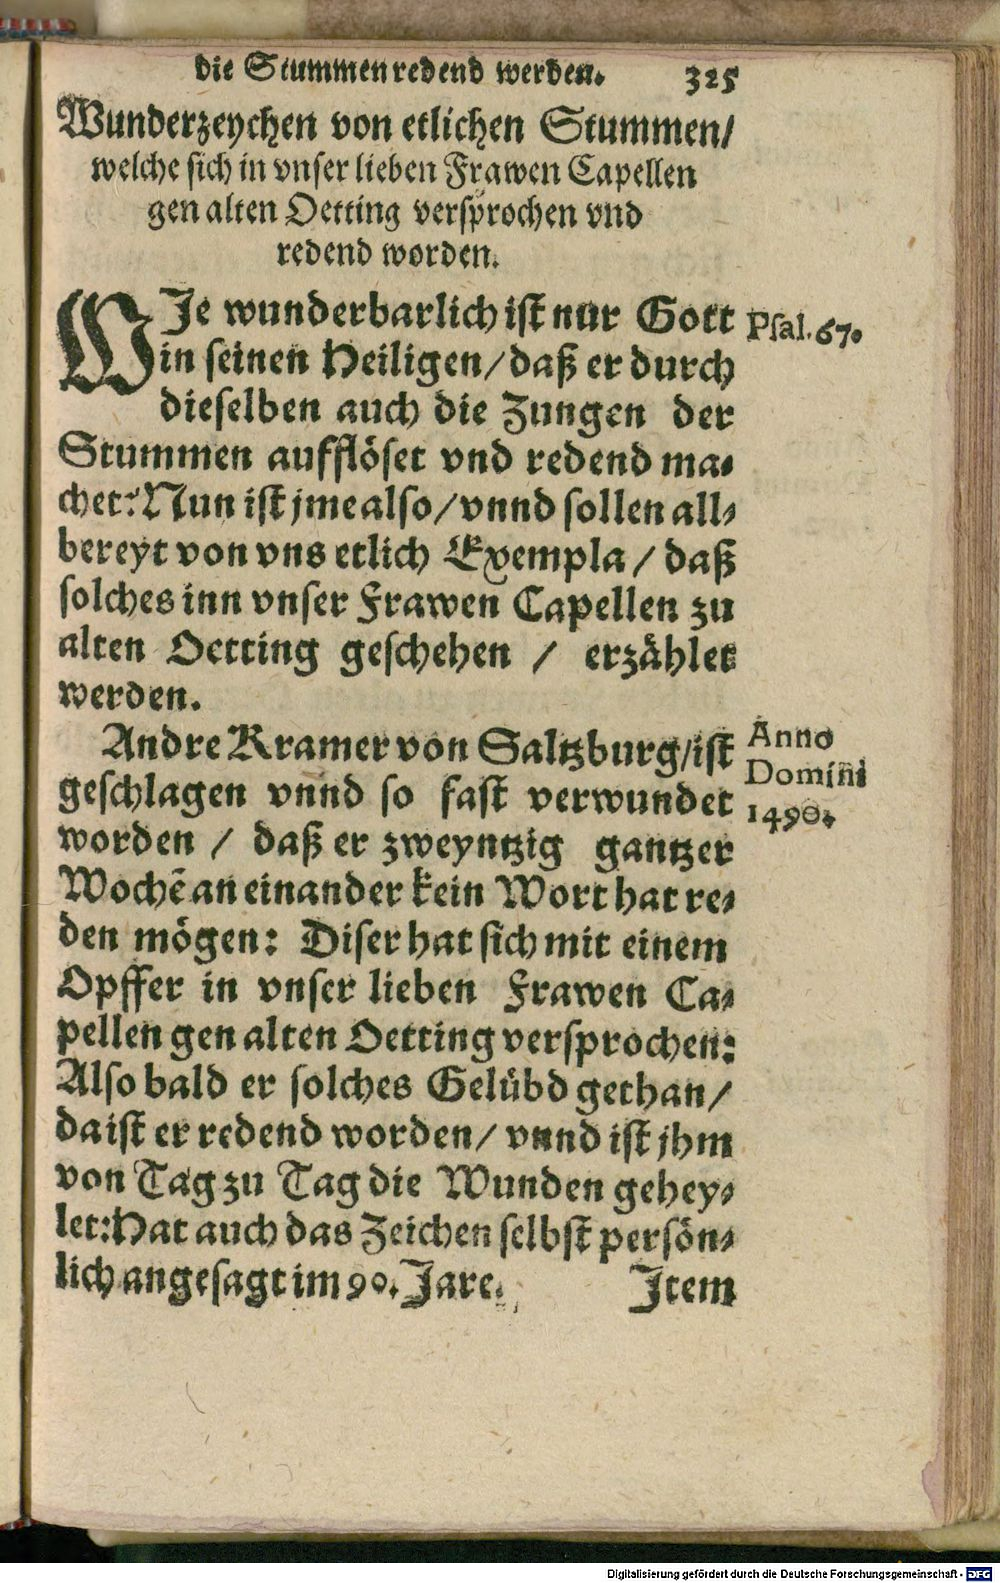 die Stummen redend werden. 325
Wunderzeychen von etlichen Stummen/
welche sich in vnser lieben Frawen Capellen
gen alten Oetting versprochen vnd
redend worden.
WJe wunderbarlich ist nur Gott
Psal. 67.
in seinen Heiligen/ daß er durch
dieselben auch die Zungen der
Stummen aufflöset vnd redend ma-
chet: Nun ist jme also/ vnnd sollen all-
bereyt von vns etlich Exempla/ daß
solches inn vnser Frawen Capellen zu
alten Oetting geschehen / erzählet
werden.
Andre Kramer von Saltzburg/ ist
Anno
Domini
1490.
geschlagen vnnd so fast verwundet
worden / daß er zweyntzig gantzer
Wochẽ an einander kein Wort hat re-
den mögen: Diser hat sich mit einem
Opffer in vnser lieben Frawen Ca-
pellen gen alten Oetting versprochen:
Also bald er solches Gelübd gethan/
da ist er redend worden/ vnnd ist jhm
von Tag zu Tag die Wunden gehey-
let: Hat auch das Zeichen selbst persön-
lich angesagt im 90. Jare. Jtem
Digitalisierung gefördert durch die Deutsche Forschungsgemeinschaft - DFG